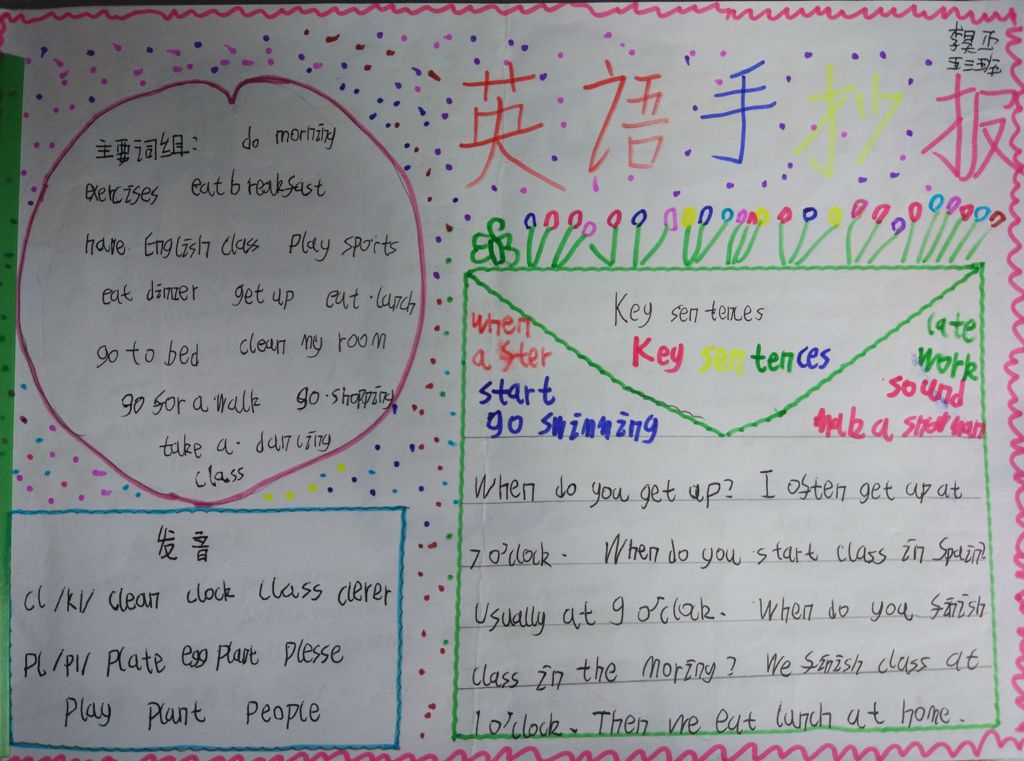 英语手抄报
五三班
主要词组: do morning
exercises eat breakfast
have English class Play sports
eat dinner get up eat·lunch
go to bed clean my room
go for a walk go·shopping
take a·dancing
class
发音
cl /kl/ clean clock class clerer
Pl /pl/ Plate eggplant Plesse
Play Plant People
Key sentences
Key sentences
when
after
start
go swimming
late
work
sound
make a snowman
When do you get up? I often get up at
7 o'clock. When do you start class in Spain?
Usually at 9 o'clock. When do you finish
class in the moring? We finish class at
1 o'clock. Then we eat lunch at home.